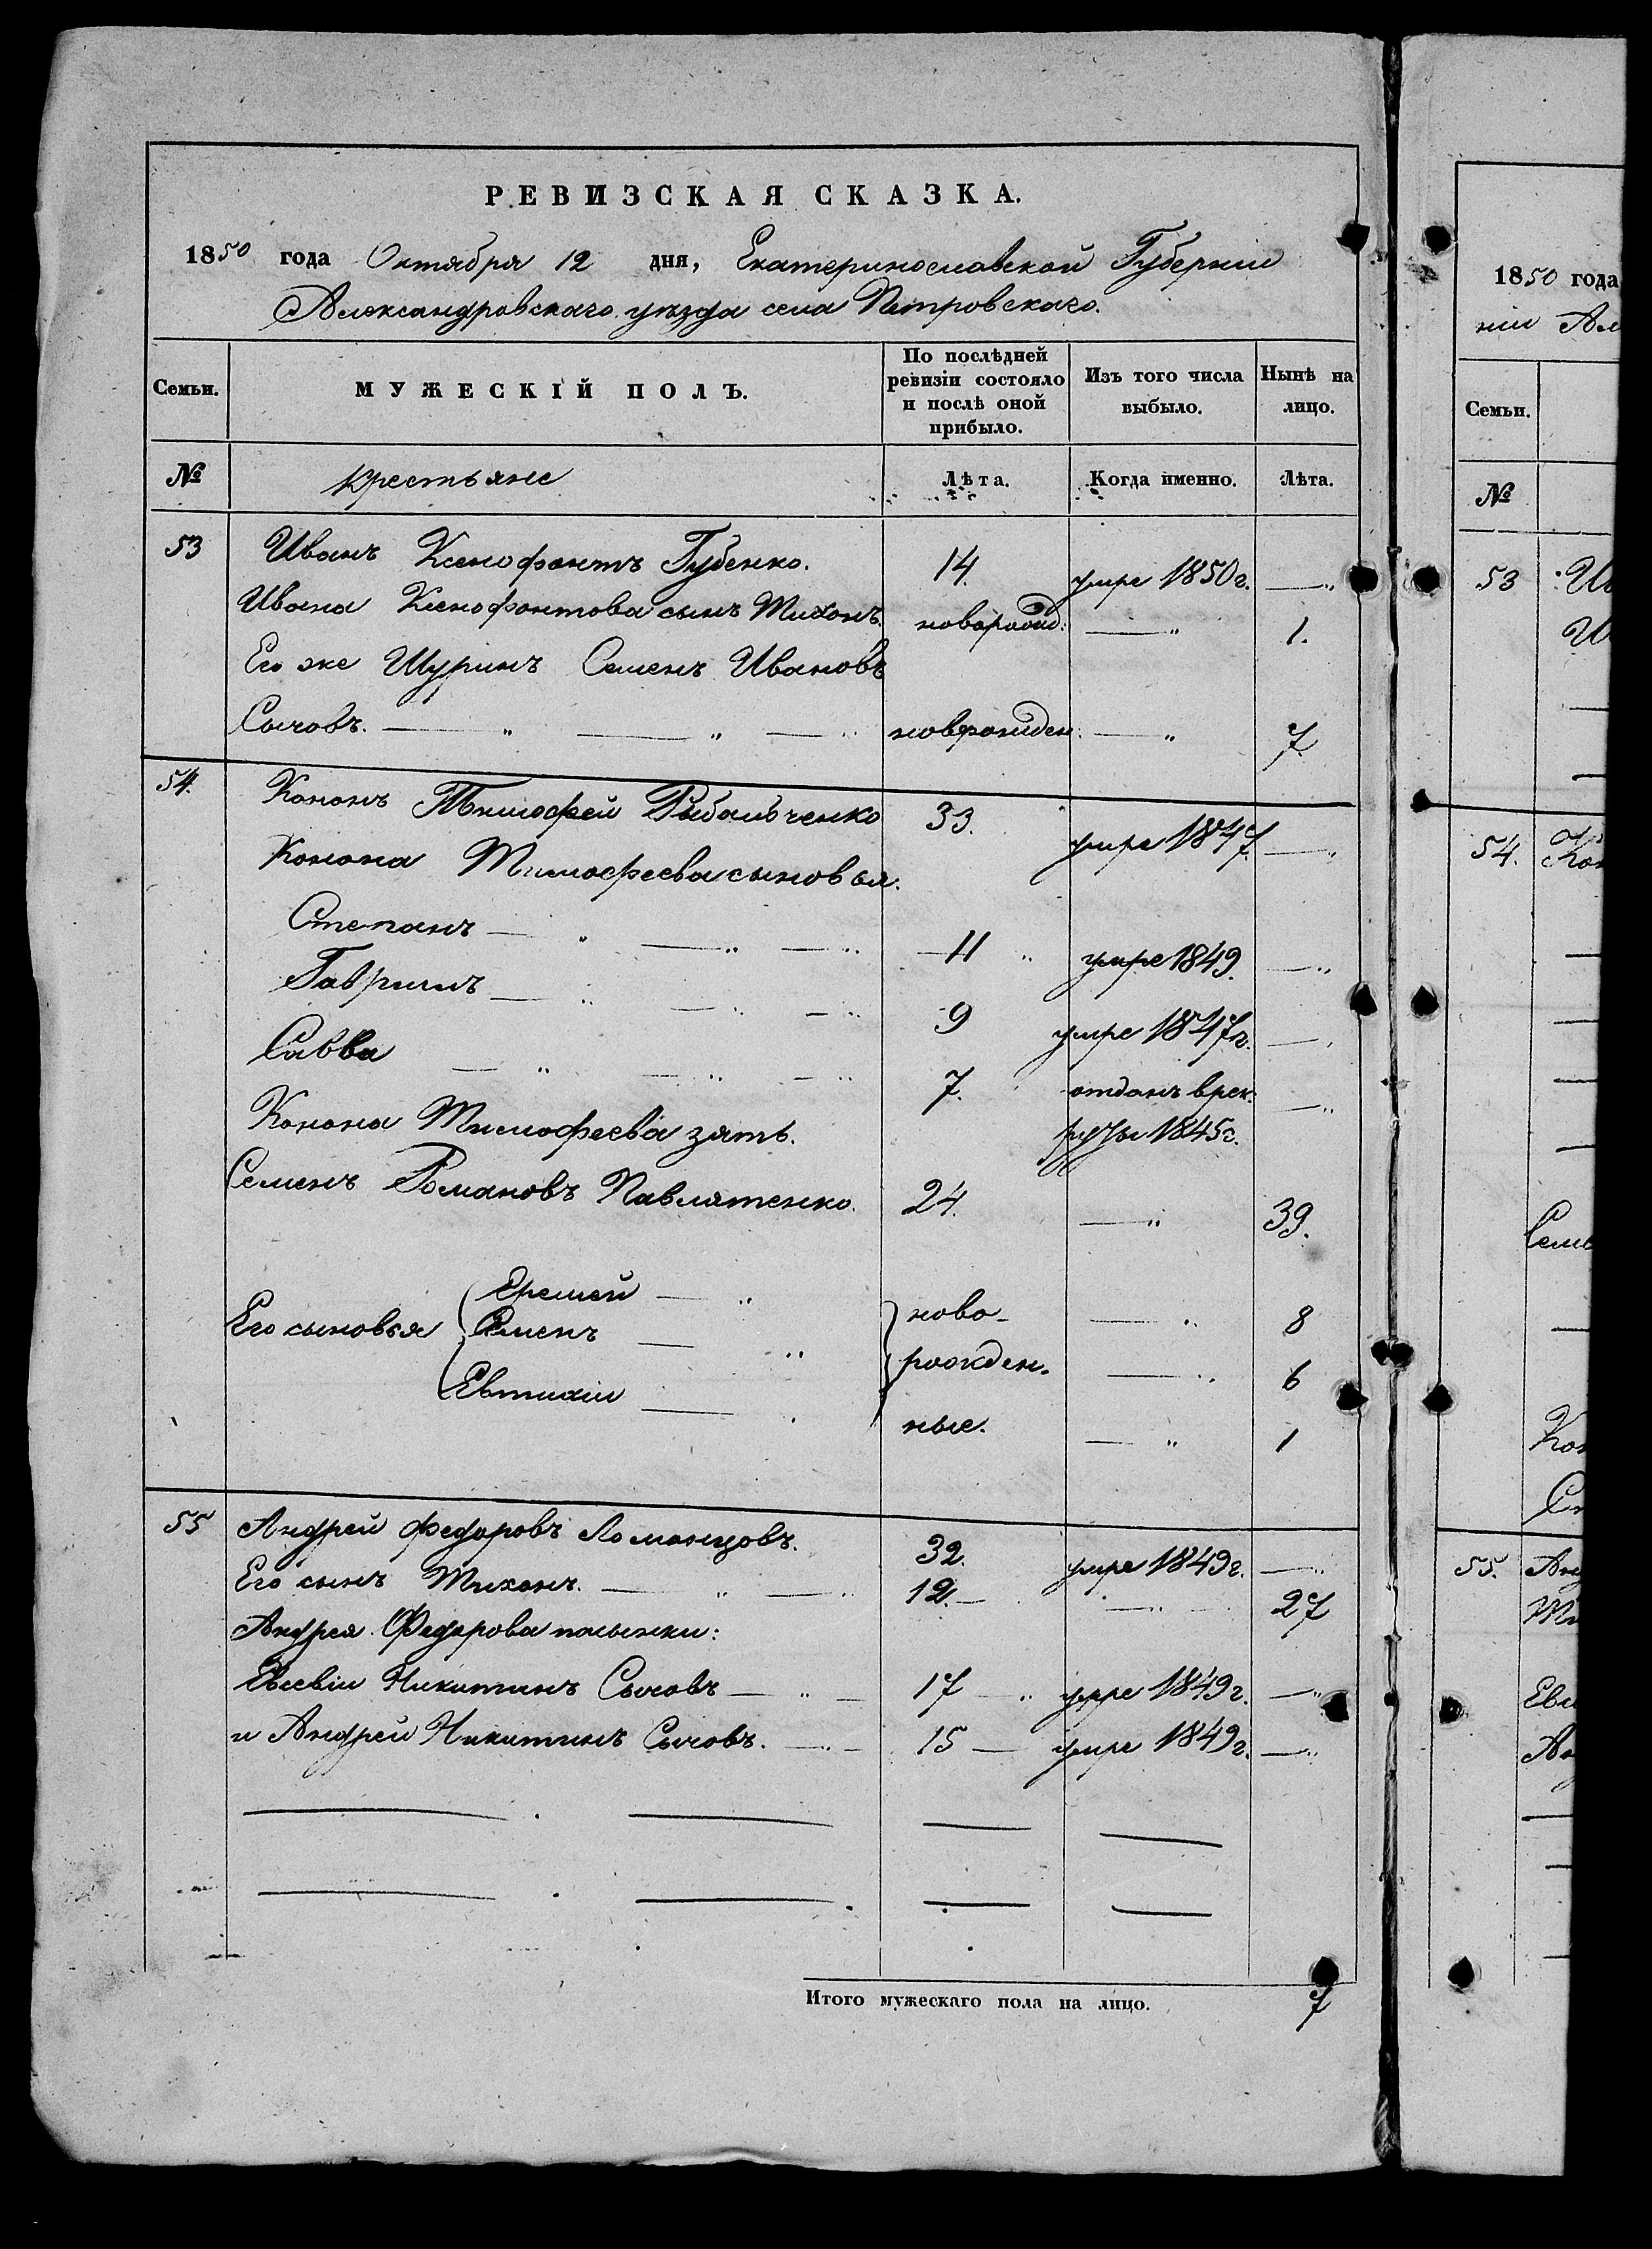 РЕВИЗСКАЯ СКАЗКА.
1850 года Октября 12 дня, Екатеринославской Губернiи
Александровскаго уѣзда села Петровскаго.
Семьи. МУЖЕСКIЙ ПОЛЪ. По послѣдней ревизiи состояло и послѣ оной прибыло. Изъ того числа выбыло. Нынѣ на лицо.
№ крестьяне Лѣта. Когда именно. Лѣта.
53 Иванъ Ксенофонтъ Губенко. 14. умре 1850 г. — „
Ивана Ксенофонтова сынъ Тихонъ. новорожд: — „ 1.
Его же Шуринъ Семенъ Ивановъ
Сычовъ. — „ — „ — новорожден. — „ 7.
54. Кононъ Тимофей Рыбальченко 33. умре 1847. — „
Конона Тимофеева сыновья.
Степанъ — „ — „ — „ 11 „ умре 1849. — „
Гаврилъ — „ — „ — „ 9 умре 1847 г. — „
Савва — „ — „ — „ 7. отданъ в рек: — „
Конона Тимофеева зять. руты 1845 г.
Семенъ Романовъ Павлятенко. 24. — „ 39.
Еремей — „ ново- — „ 8
Его сыновья Семенъ — „ рожден- — „ 6
Евтихiи — „ ные. — „ 1
55 Андрей Федоровъ Ломанцовъ. 32. умре 1849 г. — „
Его сынъ Тихонъ. — „ — „ 12. — — „ 27
Андрея Федорова пасынки:
Евсевiи Никитинъ Сычовъ — „ — 17 — „ умре 1849 г. — „
и Андрей Никитинъ Сычовъ. — „ — 15 — умре 1849 г. — „
Итого мужескаго пола на лицо. 7
1850 года
нiи Ал
Семьи.
№
53 Ив
И
54. Кон
Семе
Кон
55. Анд
Ти
Евс
Ан